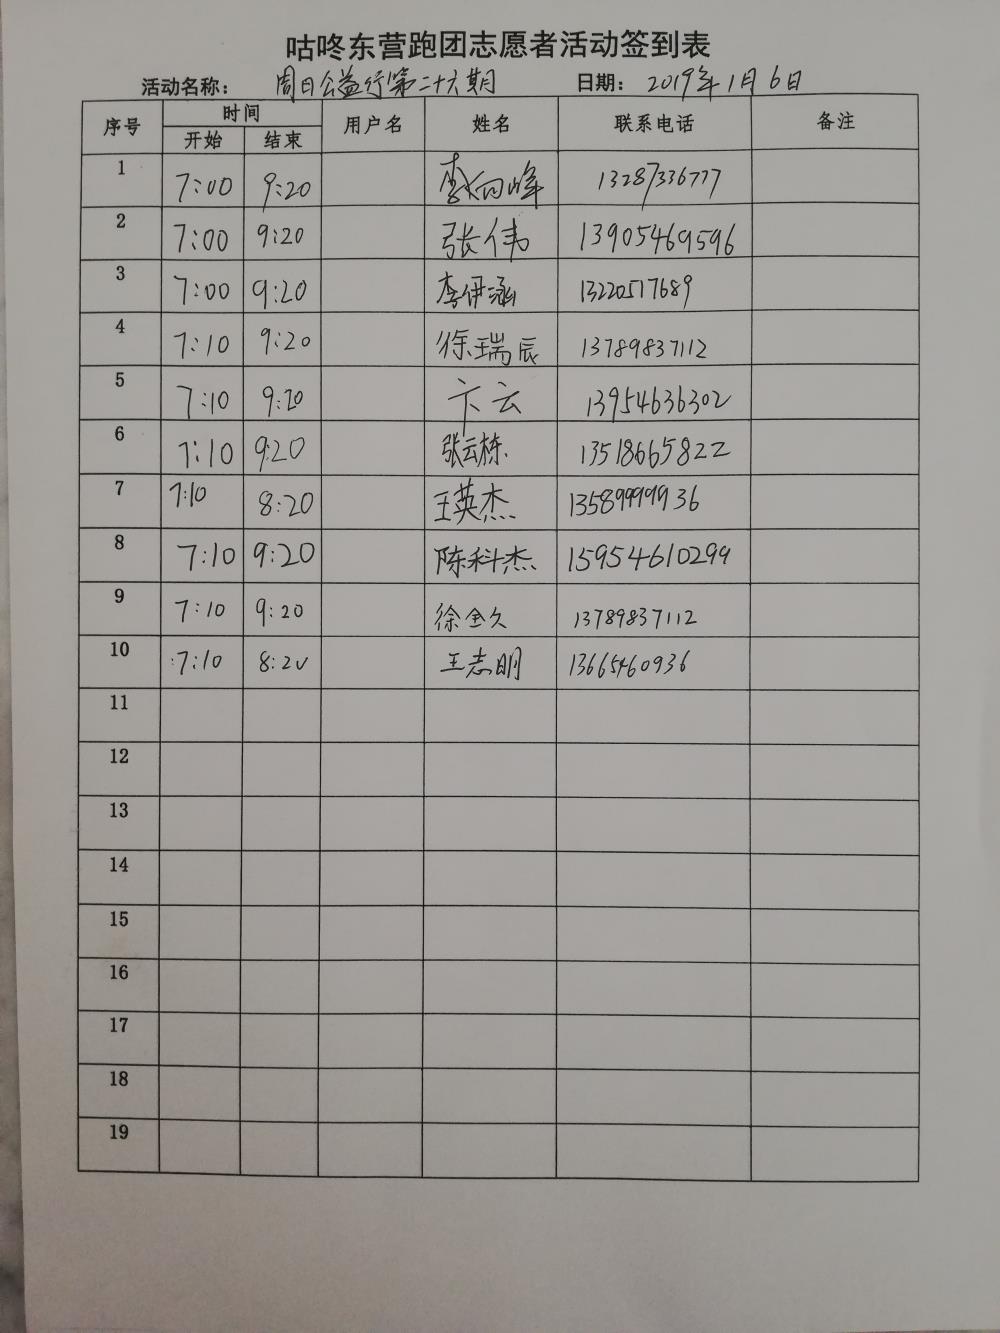 咕咚东营跑团志愿者活动签到表
活动名称： 周日公益行第二十六期 日期： 2019年1月6日
序号 时间 用户名 姓名 联系电话 备注
开始 结束
1 7:00 9:20 向峰 13287336777
2 7:00 9:20 张伟 13905469596
3 7:00 9:20 李伊涵 13220517689
4 7:10 9:20 徐瑞辰 13789837112
5 7:10 9:20 卞云 13954636302
6 7:10 9:20 张云栋 13518665822
7 7:10 8:20 王英杰 13589999936
8 7:10 9:20 陈科杰 15954610299
9 7:10 9:20 徐金久 13789837112
10 7:10 8:20 王志明 13665460936
11
12
13
14
15
16
17
18
19